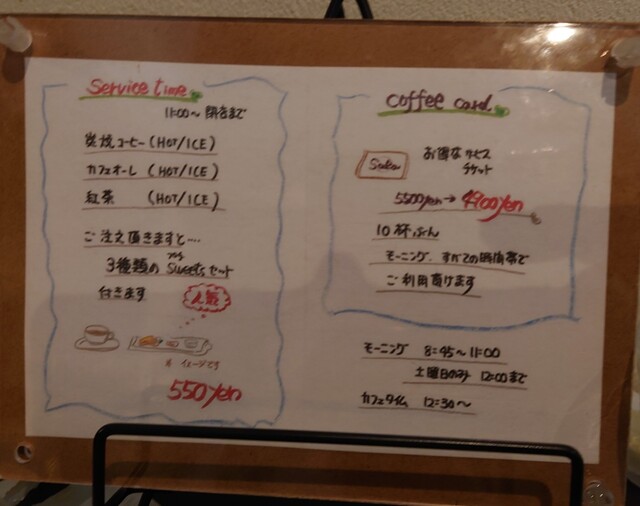 Service time
11:00〜 閉店まで
炭焼コーヒー (HOT/ICE)
カフェオーレ (HOT/ICE)
紅茶 (HOT/ICE)
ご注文頂きますと....
3種類の Sweetsセット
付きます
人気
※ イメージです
550yen
coffee card
お得なサービス
チケット
5500yen→4900yen
10杯ぶん
モーニング、すべての時間帯で
ご利用頂けます
モーニング 8:45〜11:00
土曜日のみ 12:00まで
カフェタイム 12:30〜